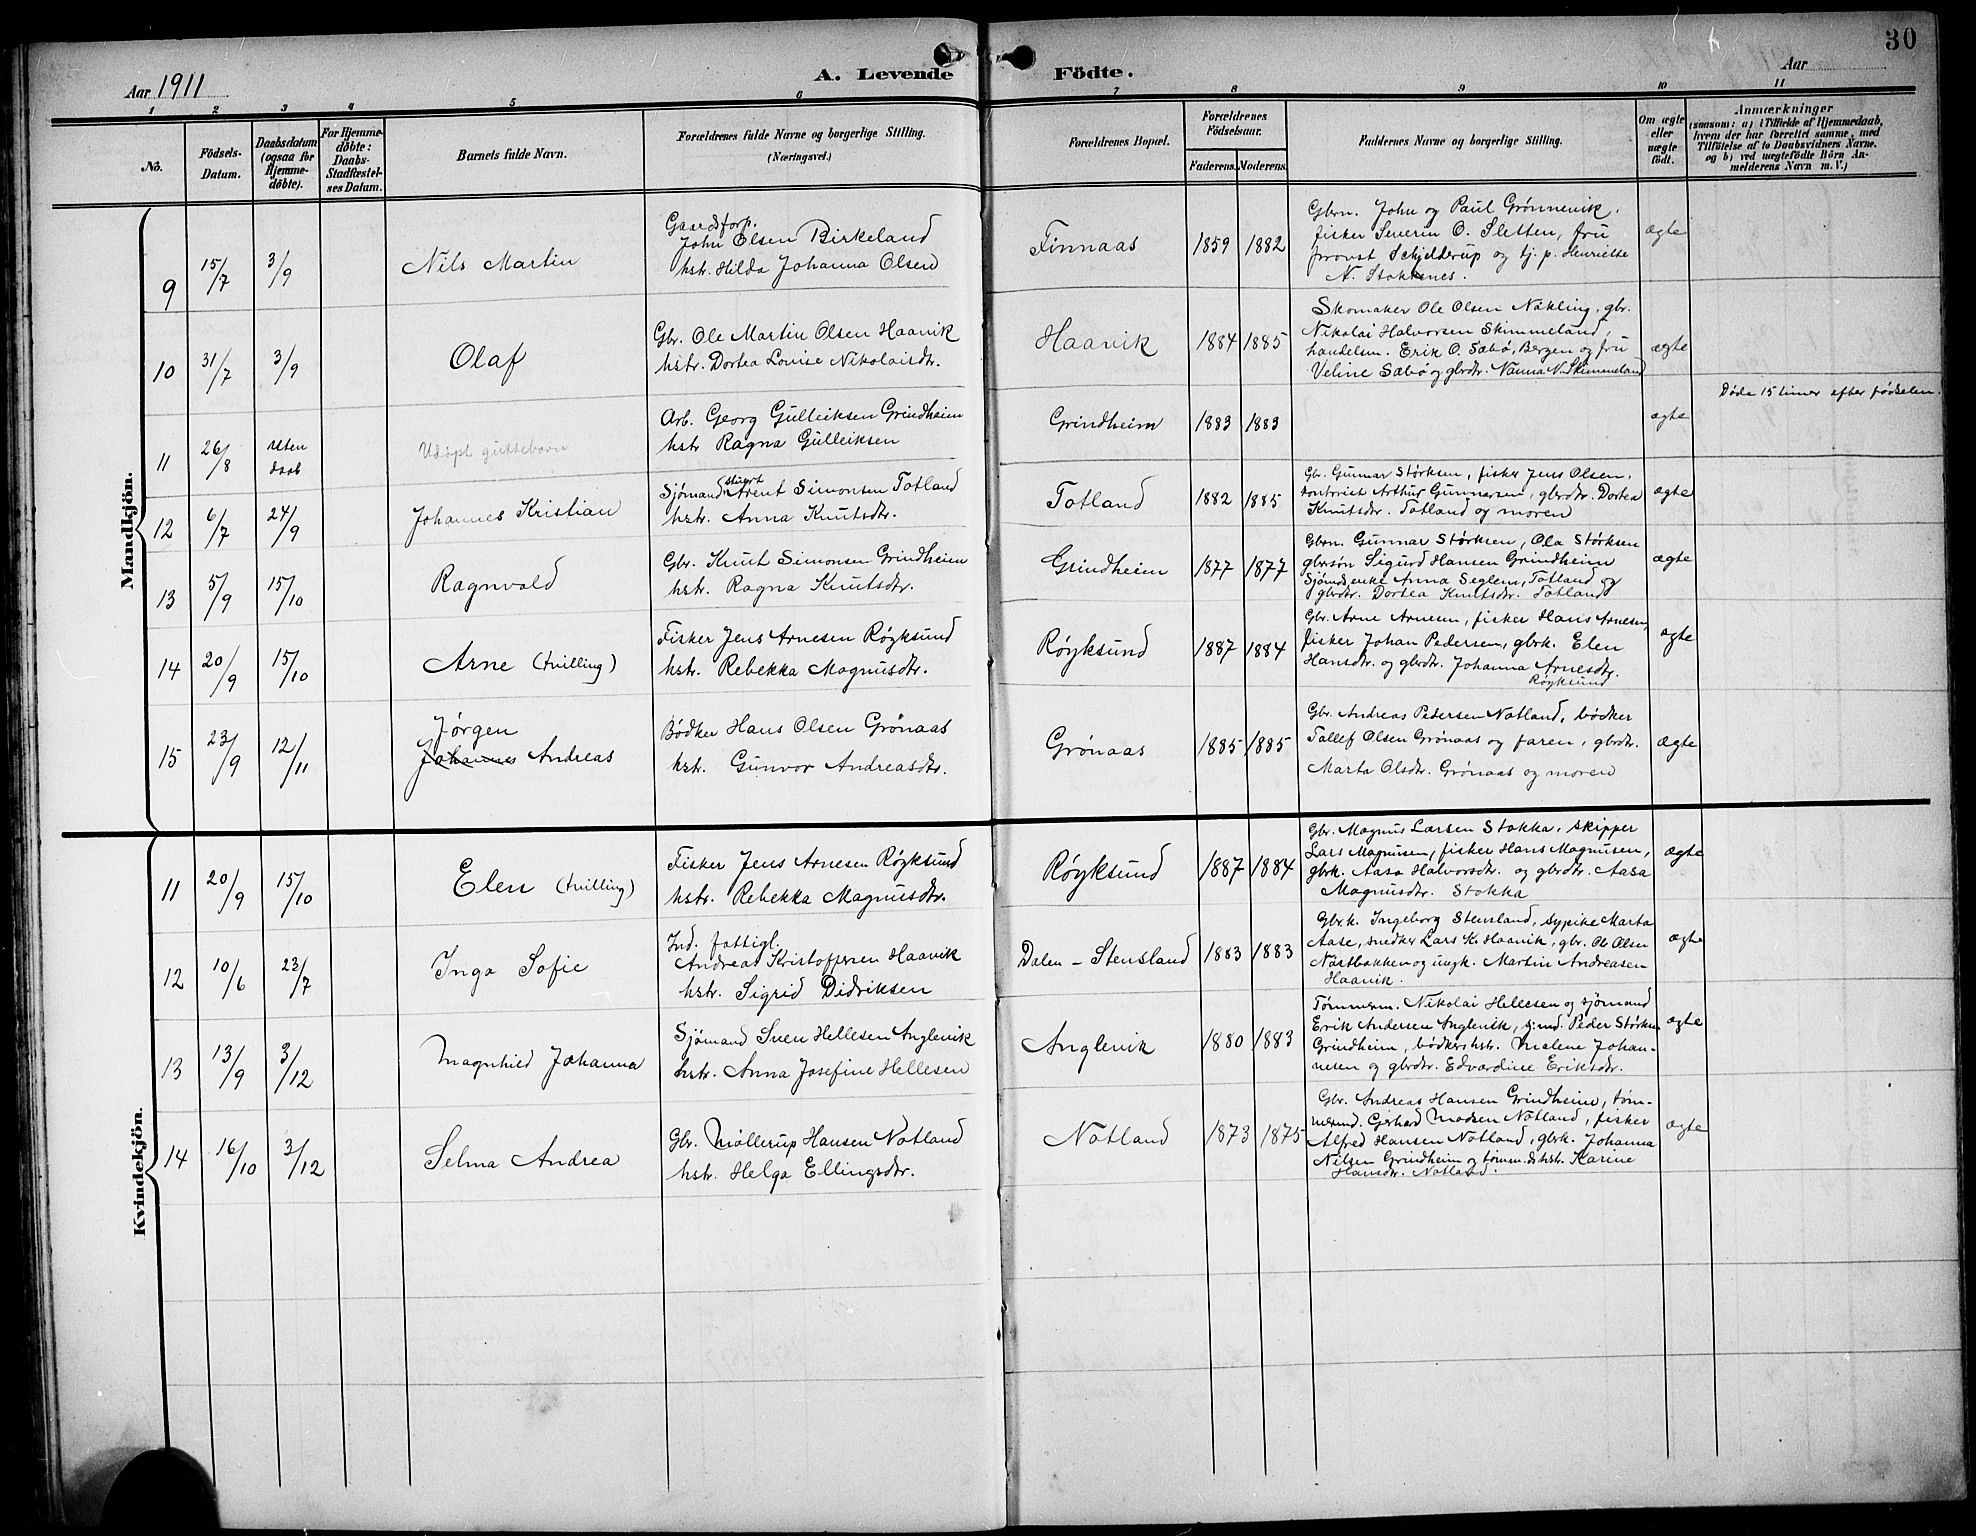 30
Aar 1911
A. Levende Födte.
Aar
1 2 3 4 5 6 7 8 9 10 11
No.
Födsels-Datum.
Daabsdatum (ogsaa for Hjemme-döbte).
For Hjemme-döbte: Daabs-Stadfæstel-ses Datum.
Barnets fulde Navn.
Forældrenes fulde Navne og borgerlige Stilling.
(Næringsvei.)
Forældrenes Bopæl.
Forældrenes Födselsaar.
Faderens. Moderens.
Faddernes Navne og borgerlige Stilling.
Om ægte eller uægte födt.
Anmærkninger
(saasom: a) i Tilfælde af Hjemmedaab,
hvem der har forrettet samme, med
Tilföielse af to Daabsvidners Navne.
og b) ved uægtefödte Börn An-
melderens Navn m. V.)
Mandkjön.
9 15/7 3/9 Nils Martin
Gaardsforp.
John Olsen Birkeland
hstr. Hilda Johanna Olsen
Finnaas 1859 1882
Gbrn. John og Paul Grønnevik,
fisker Severin O. Sletten, fru
provst Schjelderup og tj. p. Henriette
N. Stokkenes.
ægte
10 31/7 3/9 Olaf
Gbr. Ole Martin Olsen Haavik
hstr. Dortea Lovise Nikolaisdtr.
Haavik 1884 1885
Skomaker Ole Olsen Nökling, gbr.
Nikolai Halvorsen Skimmeland,
handelsm. Erik O. Sæbø, Bergen og fru
Veline Sæbø og gbrdtr. Nanna N. Skimmeland
ægte
11 26/8 uten daab Udøpt guttebarn
Arb. Georg Gulleiksen Grindheim
hstr Ragna Gulleiksen
Grindheim 1883 1883
ægte
Døde 15 timer efter fødselen.
12 6/7 24/9 Johannes Kristian
Sjømand, stuert Arent Simonsen Totland
hstr. Anna Knutsdtr.
Totland 1882 1885
Gbr. Gunnar Størksen, fisker Jens Olsen,
kontorist Arthur Gunnarsen, gbrdtr. Dortea
Knutsdtr. Totland og moren
ægte
13 5/9 15/10 Ragnvald
Gbr. Knut Simonsen Grindheim
hstr. Ragna Knutsdtr.
Grindheim 1877 1877
Gbrn. Gunnar Størksen, Ola Størksen
gbrsøn Sigurd Hansen Grindheim
Sjømdsenke Anna Seglem, Totland og
gbrdtr. Dortea Knutsdtr. Totland
ægte
14 20/9 15/10 Arne (tvilling)
Fisker Jens Arnesen Røyksund
hstr. Rebekka Magnusdtr.
Røyksund 1887 1884
Gbr. Arne Arnesen, fisker Hans Arnesen,
fisker Johan Pedersen, gbrk. Elen
Hansdtr. og gbrdtr. Johanna Arnesdtr.
Røyksund
ægte
15 23/9 12/11 Jørgen
Johannes Andreas
Bødker Hans Olsen Grönaas
hstr. Gunvor Andreasdtr.
Grönaas 1885 1885
Gbr. Andreas Pedersen Notland, bødker
Tallef Olsen Grönaas og faren, gbrdtr.
Marta Olsdtr. Grönaas og moren
ægte
Kvindekjön.
11 20/9 15/10 Elen (tvilling)
Fisker Jens Arnesen Røyksund
hstr. Rebekka Magnusdtr.
Røyksund 1887 1884
Gbr. Magnus Larsen Stokka, skipper
Lars Magnusen, fisker Hans Magnusen,
gbrk. Aasa Halvorsdtr. og gbrdtr. Aasa
Magnusdtr. Stokka
ægte
12 10/6 23/7 Inga Sofie
Ind. fattigl.
Andreas Kristoffersen Haavik
hstr. Sigrid Didriksen
Dalen - Stensland 1883 1883
Gbrk. Ingeborg Stensland, sypike Marta
Aase, snedker Lars K. Haavik, gbr. Ole Olsen
Næstbakken og ungk. Martin Andreasen
Haavik.
ægte
13 13/9 3/12 Magnhild Johanna
Sjømand Sven Hellesen Anglevik
hstr. Anna Josefine Hellesen
Anglevik 1880 1883
Tømmerm. Nikolai Hellesen og sjømand
Erik Andersen Anglevik, sj.md. Peder Størksen
Grindheim, bødkershstr. Malene Johan-
nesen og gbrdtr. Edvardine Eriksdtr.
ægte
14 16/10 3/12 Selma Andrea
Gbr. Møllerup Hansen Notland
hstr. Helga Ellingsdtr.
Notland 1873 1875
Gbr. Andreas Hansen Grindheim, tøm-
mermd. Gerhard Madsen Notland, fisker
Alfred Hansen Notland, gbrk. Johanna
Nilsen Grindheim og tømm.dshstr. Karine
Hansdtr. Notland.
ægte